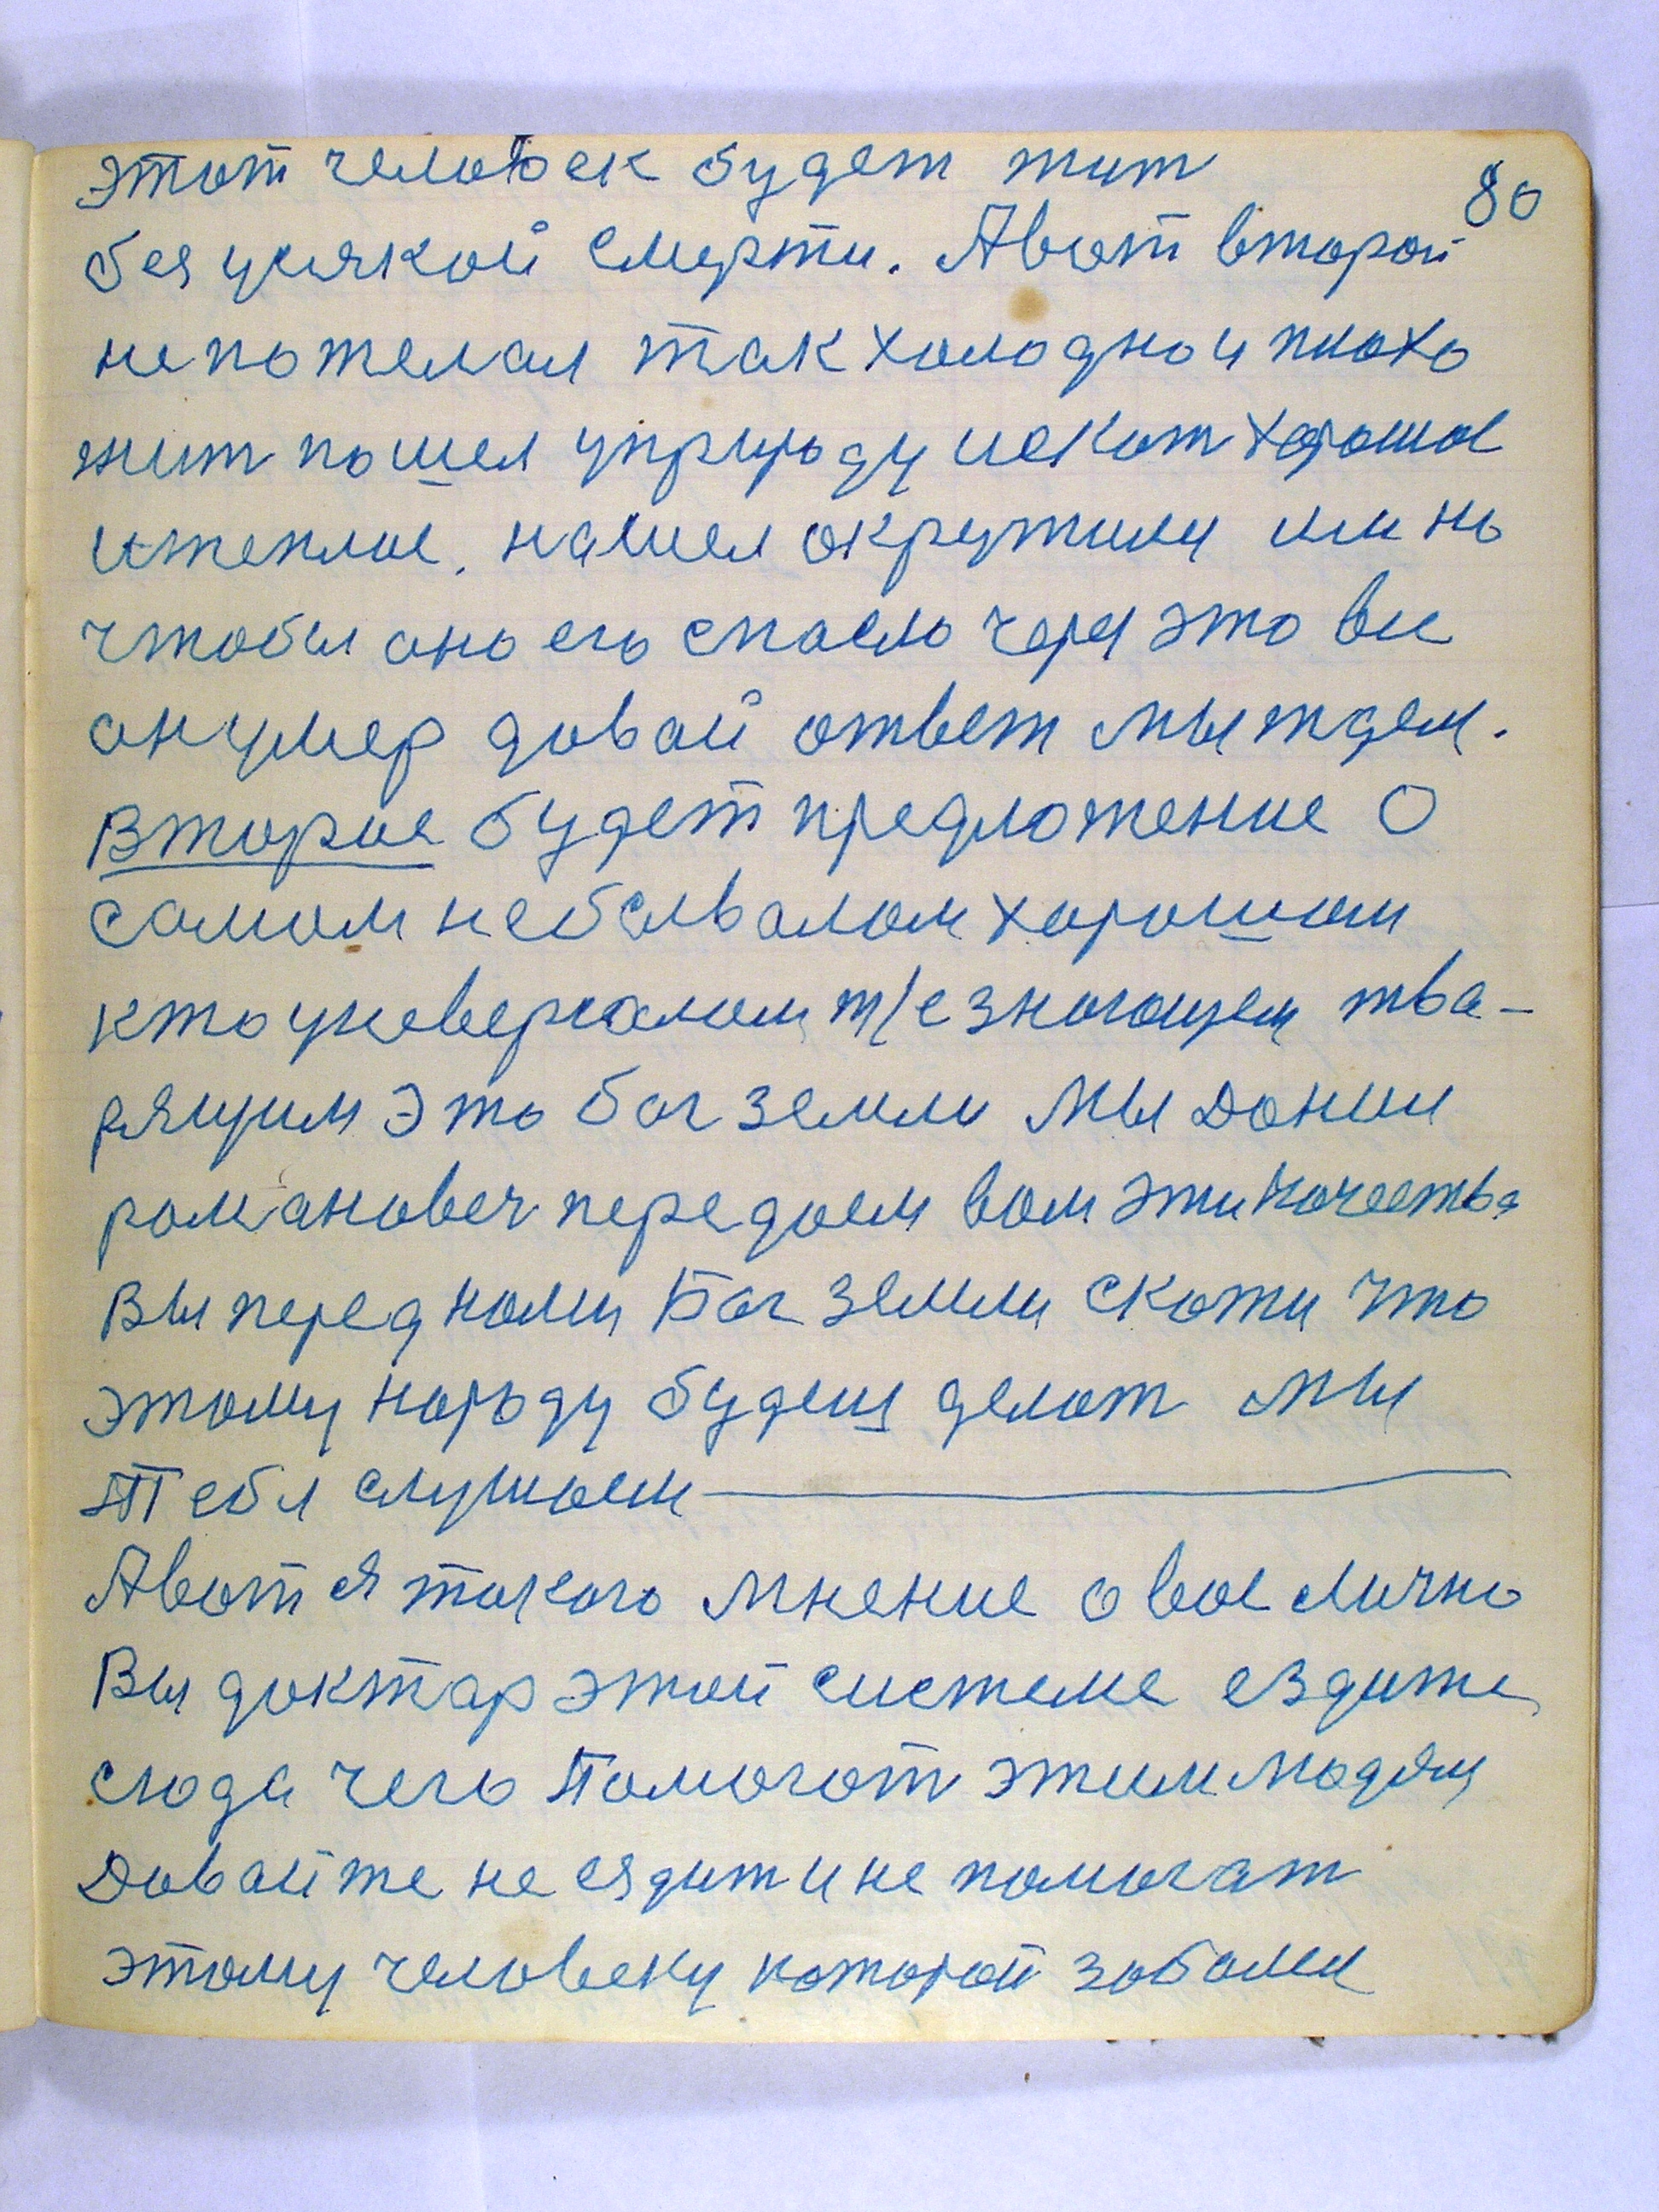 этот человек будет жит
80
без усякой смерти. Авот второй
не пожелал так холодно и плохо
жит пошел уприроду искат хорошое
итеплое. нашел окружили им но
чтобы оно его спасло через это все
он умер довай ответ мы ждем.
Второе будет предложение О
самом небывалом хорошом
кто уневерсалом т/е знающем тва-
рящим это бог земли Мы Дониил
романовеч передоем вом эти кочества
Вы передноми Бог земли скожи что
этому нороду будеш делот мы
Тебя слушоем
Авот я токого мнение о вос лично
Вы доктар этой системе ездите
сюда чего Помогот этим людям
Довайте не ездит и не помогат
этому человеку которой зоболел